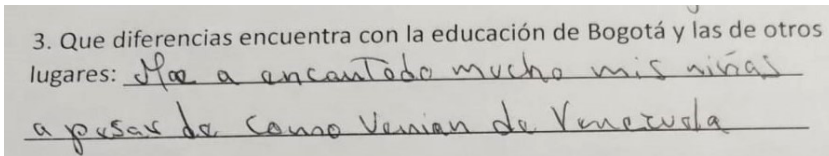 3. Que diferencias encuentra con la educación de Bogotá y las de otros
lugares: Me a encantado mucho mis niñas
a pesar de como venian de Venezuela